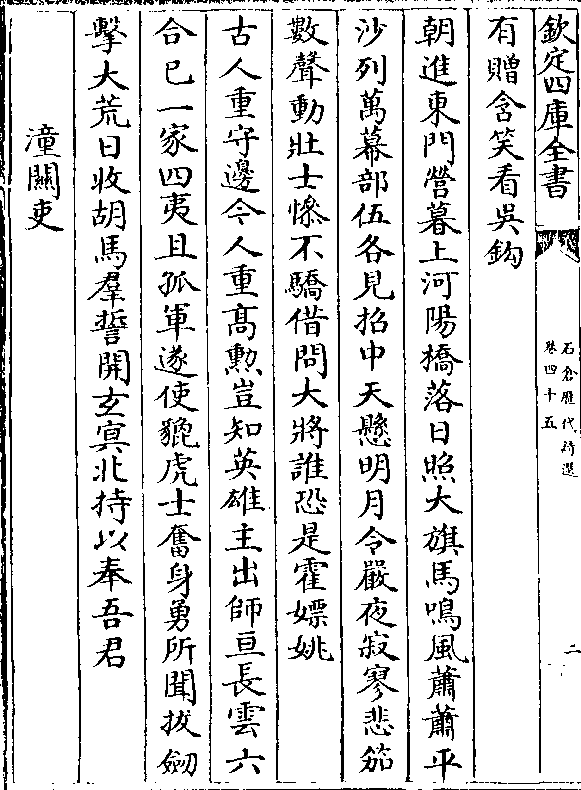 欽定四庫全書
石倉歷代詩選
卷四十五
二
有贈含笑看吳鈎
朝進東門營暮上河陽橋落日照大旗馬鳴風蕭蕭平
沙列萬幕部伍各見招中天懸明月令嚴夜寂寥悲笳
數聲動壯士慘不驕借問大將誰恐是霍嫖姚
古人重守邊今人重髙勲豈知英雄主出師亘長雲六
合已一家四夷且孤軍遂使貔虎士奮身勇所聞拔劒
擊大荒日收胡馬羣誓開玄㝠北持以奉吾君
潼關吏